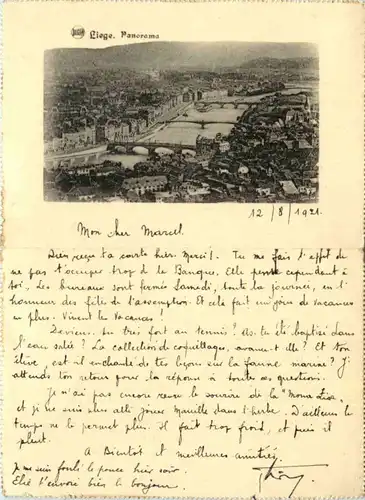 Liege. Panorama
12/8/1921.
Mon cher Marcel.
Bien reçu ta carte hier. Merci! Tu me fais l'effet de
ne pas t'occuper trop de la Banque. Elle pense cependant à
toi. Les bureaux sont fermés Samedi, toute la journée, en l'
honneur des fêtes de l'assomption. Et cela fait un jour de vacances
en plus. Vivent les vacances!
Deviens-tu très fort au tennis? As-tu été baptisé dans
l'eau salée? La collection de coquillages, avance-t-elle? Et ton
élève, est-il enchanté de tes leçons sur la faune marine? J'
attends ton retour pour la réponse à toutes ces questions.
Je n'ai pas encore revu le sourire de la "Mona Lisa",
et je ne suis plus allé jouer dans l'herbe. D'ailleurs le
temps ne le permet plus. Il fait trop froid, et puis il
pleut.
A Bientôt et meilleures amitiés.
Je me suis foulé le pouce hier soir.
Elle t'envoie bien le bonjour.